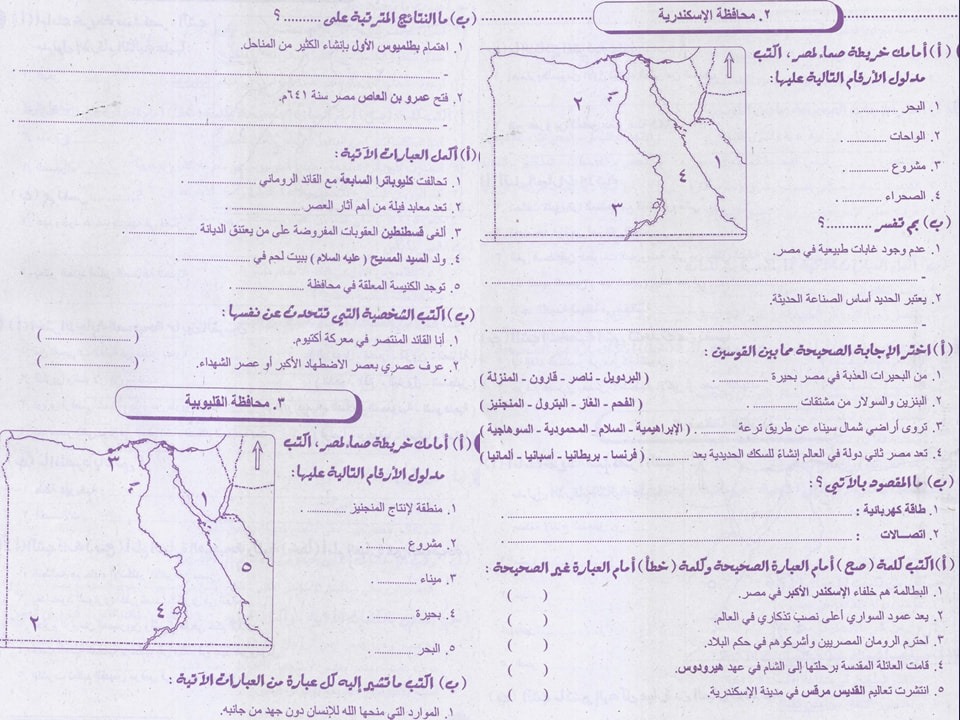 ٢. محافظة الإسكندرية
(أ) أمامك خريطة صماء لمصر، اكتب
مدلول الأرقام التالية عليها:
١. البحر ..........
٢. الواحات ..........
٣. مشروع ..........
٤. الصحراء ..........
١
٢
٣
٤
(ب) بم تفسر ..........؟
١. عدم وجود غابات طبيعية في مصر.
٢. يعتبر الحديد أساس الصناعة الحديثة.
(أ) اختر الإجابة الصحيحة مما بين القوسين:
١. من البحيرات العذبة في مصر بحيرة (البردويل - ناصر - قارون - المنزلة)
٢. البنزين والسولار من مشتقات .......... (الفحم - الغاز - البترول - المنجنيز)
٣. تروى أراضي شمال سيناء عن طريق ترعة .......... (الإبراهيمية - السلام - المحمودية - السوهاجية)
٤. تعد مصر ثاني دولة في العالم إنشاءً للسكك الحديدية بعد .......... (فرنسا - بريطانيا - أسبانيا - ألمانيا)
(ب) ما المقصود بالآتي؟:
١. طاقة كهربائية: ..........
٢. اتصالات: ..........
(أ) اكتب كلمة (صح) أمام العبارة الصحيحة وكلمة (خطأ) أمام العبارة غير الصحيحة:
١. البطالمة هم خلفاء الإسكندر الأكبر في مصر. ( )
٢. يعد عمود السواري أعلى نصب تذكاري في العالم. ( )
٣. احترم الرومان المصريين وأشركوهم في حكم البلاد. ( )
٤. قامت العائلة المقدسة برحلتها إلى الشام في عهد هيرودوس. ( )
٥. انتشرت تعاليم القديس مرقس في مدينة الإسكندرية. ( )
(ب) ما النتائج المترتبة على ..........؟
١. اهتمام بطلميوس الأول بإنشاء الكثير من المناحل.
٢. فتح عمرو بن العاص مصر سنة ٦٤١م.
(أ) أكمل العبارات الآتية:
١. تحالفت كليوباترا السابعة مع القائد الروماني ..........
٢. تعد معابد فيلة من أهم آثار العصر ..........
٣. ألغى قسطنطين العقوبات المفروضة على من يعتنق الديانة ..........
٤. ولد السيد المسيح (عليه السلام) ببيت لحم في ..........
٥. توجد الكنيسة المعلقة في محافظة ..........
(ب) اكتب الشخصية التي تتحدث عن نفسها:
١. أنا القائد المنتصر في معركة أكتيوم. (..........)
٢. عرف عصري بعصر الاضطهاد الأكبر أو عصر الشهداء. (..........)
٣. محافظة القليوبية
(أ) أمامك خريطة صماء لمصر، اكتب
مدلول الأرقام التالية عليها:
١. منطقة لإنتاج المنجنيز ..........
٢. مشروع ..........
٣. ميناء ..........
٤. بحيرة ..........
٥. البحر ..........
١
٢
٣
٤
٥
(ب) اكتب ما تشير إليه كل عبارة من العبارات الآتية:
١. الموارد التي منحها الله للإنسان دون جهد من جانبه.